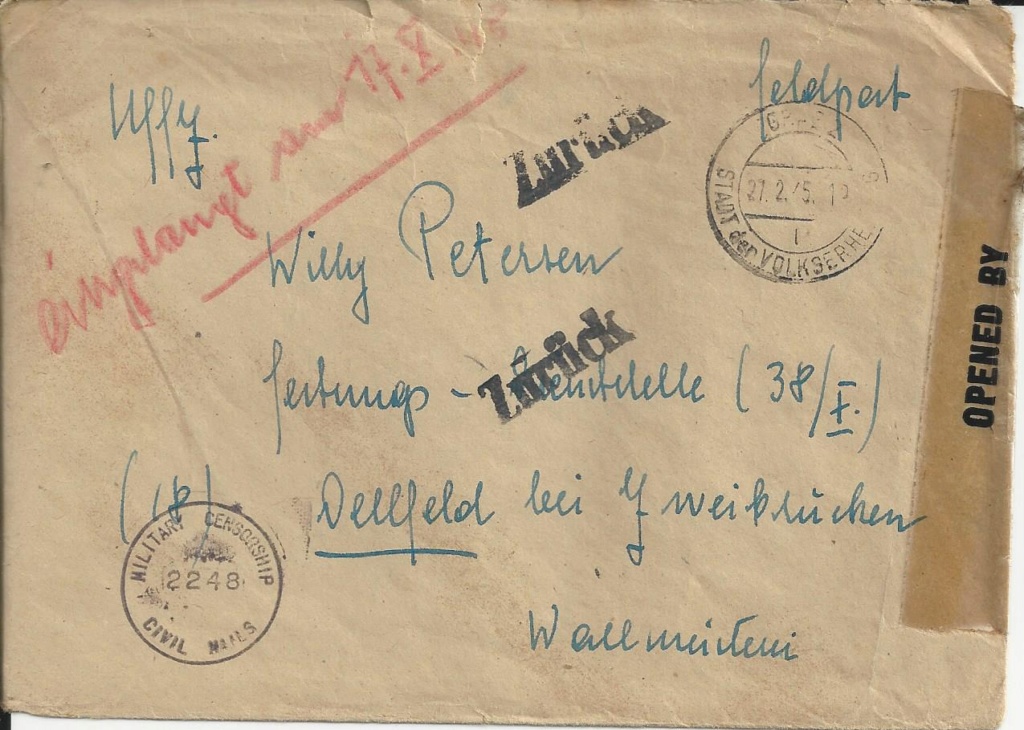 Feldpost
Uffz.
empfangt am 17.X.45
Zurück
GRAZ
STADT der VOLKSERHE G
27.2.45.
Willy Petersen
Zurück
Festungs - (38/X.)
(18) Dellfeld bei Zweibrücken
Wallmeisterei
MILITARY CENSORSHIP
2248
CIVIL MAILS
OPENED BY